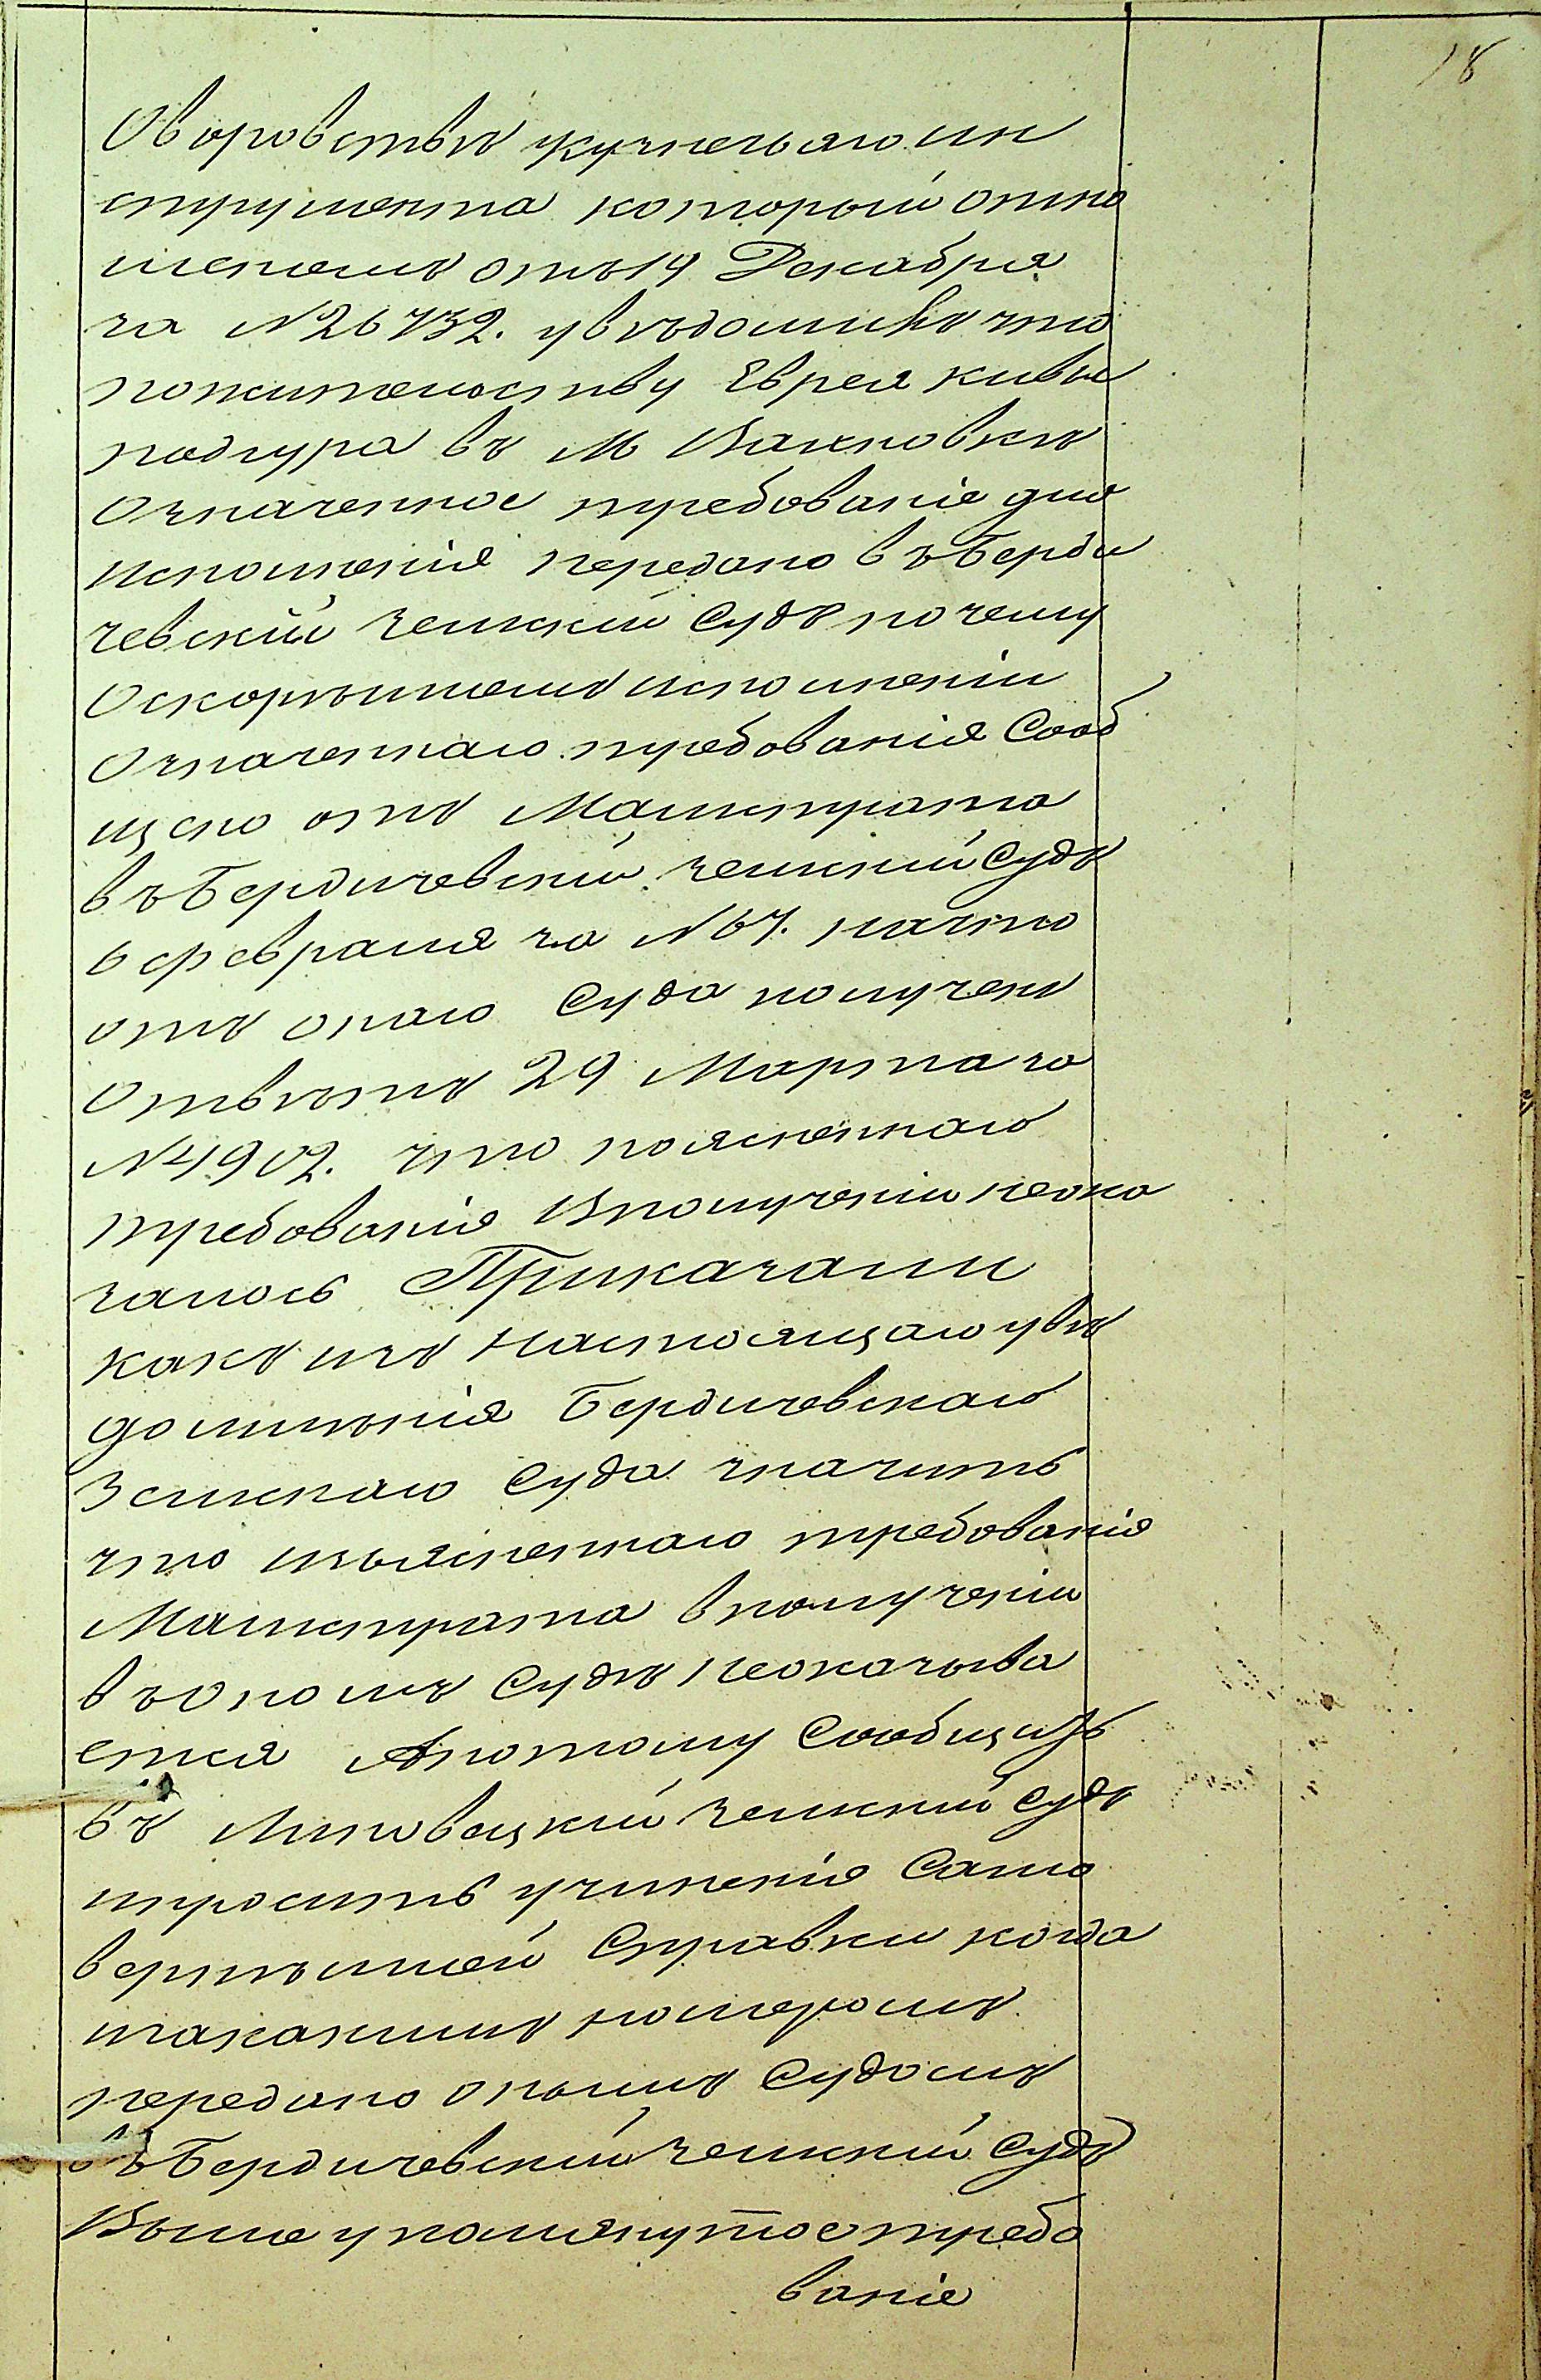 18
О воровствѣ укузнечьаго ин
струмента который отно
шеніемъ отъ 14 Декабря
за №26732. увѣдомилъ что
пожительству Еврея Кивы
подгура въ М Вахновкѣ
означенное требованіе для
исполненія передано въ Берди
чевскій земскій Судъ почему
Оскорѣйшемъ исполненіи
Означеннаго требованія Сооб
щено отъ Магистрата
въ Бердичевскій земскій Судъ
6 февраля за №67. начто
отъ онаго Суда полученъ
Отвѣтъ 29 Марта за
№4902. что поясненнаго
требованія Вполученіи неока
залось Приказали
какъ изъ настоящаго увѣ
домленія Бердичевскаго
Земскаго Суда значитъ
что изъясненнаго требованія
Магистрата вполученіи
въ ономъ Судѣ неоказыва
ется Апотому Сообщить
въ Липовецкій земскій Судъ
просить учиненія Само
вернѣйшей Справки когда
изакакимъ номеромъ
передано онымъ Судомъ
въ Бердичевскій земскій Судъ
Вышеупомянутое требо
ваніе